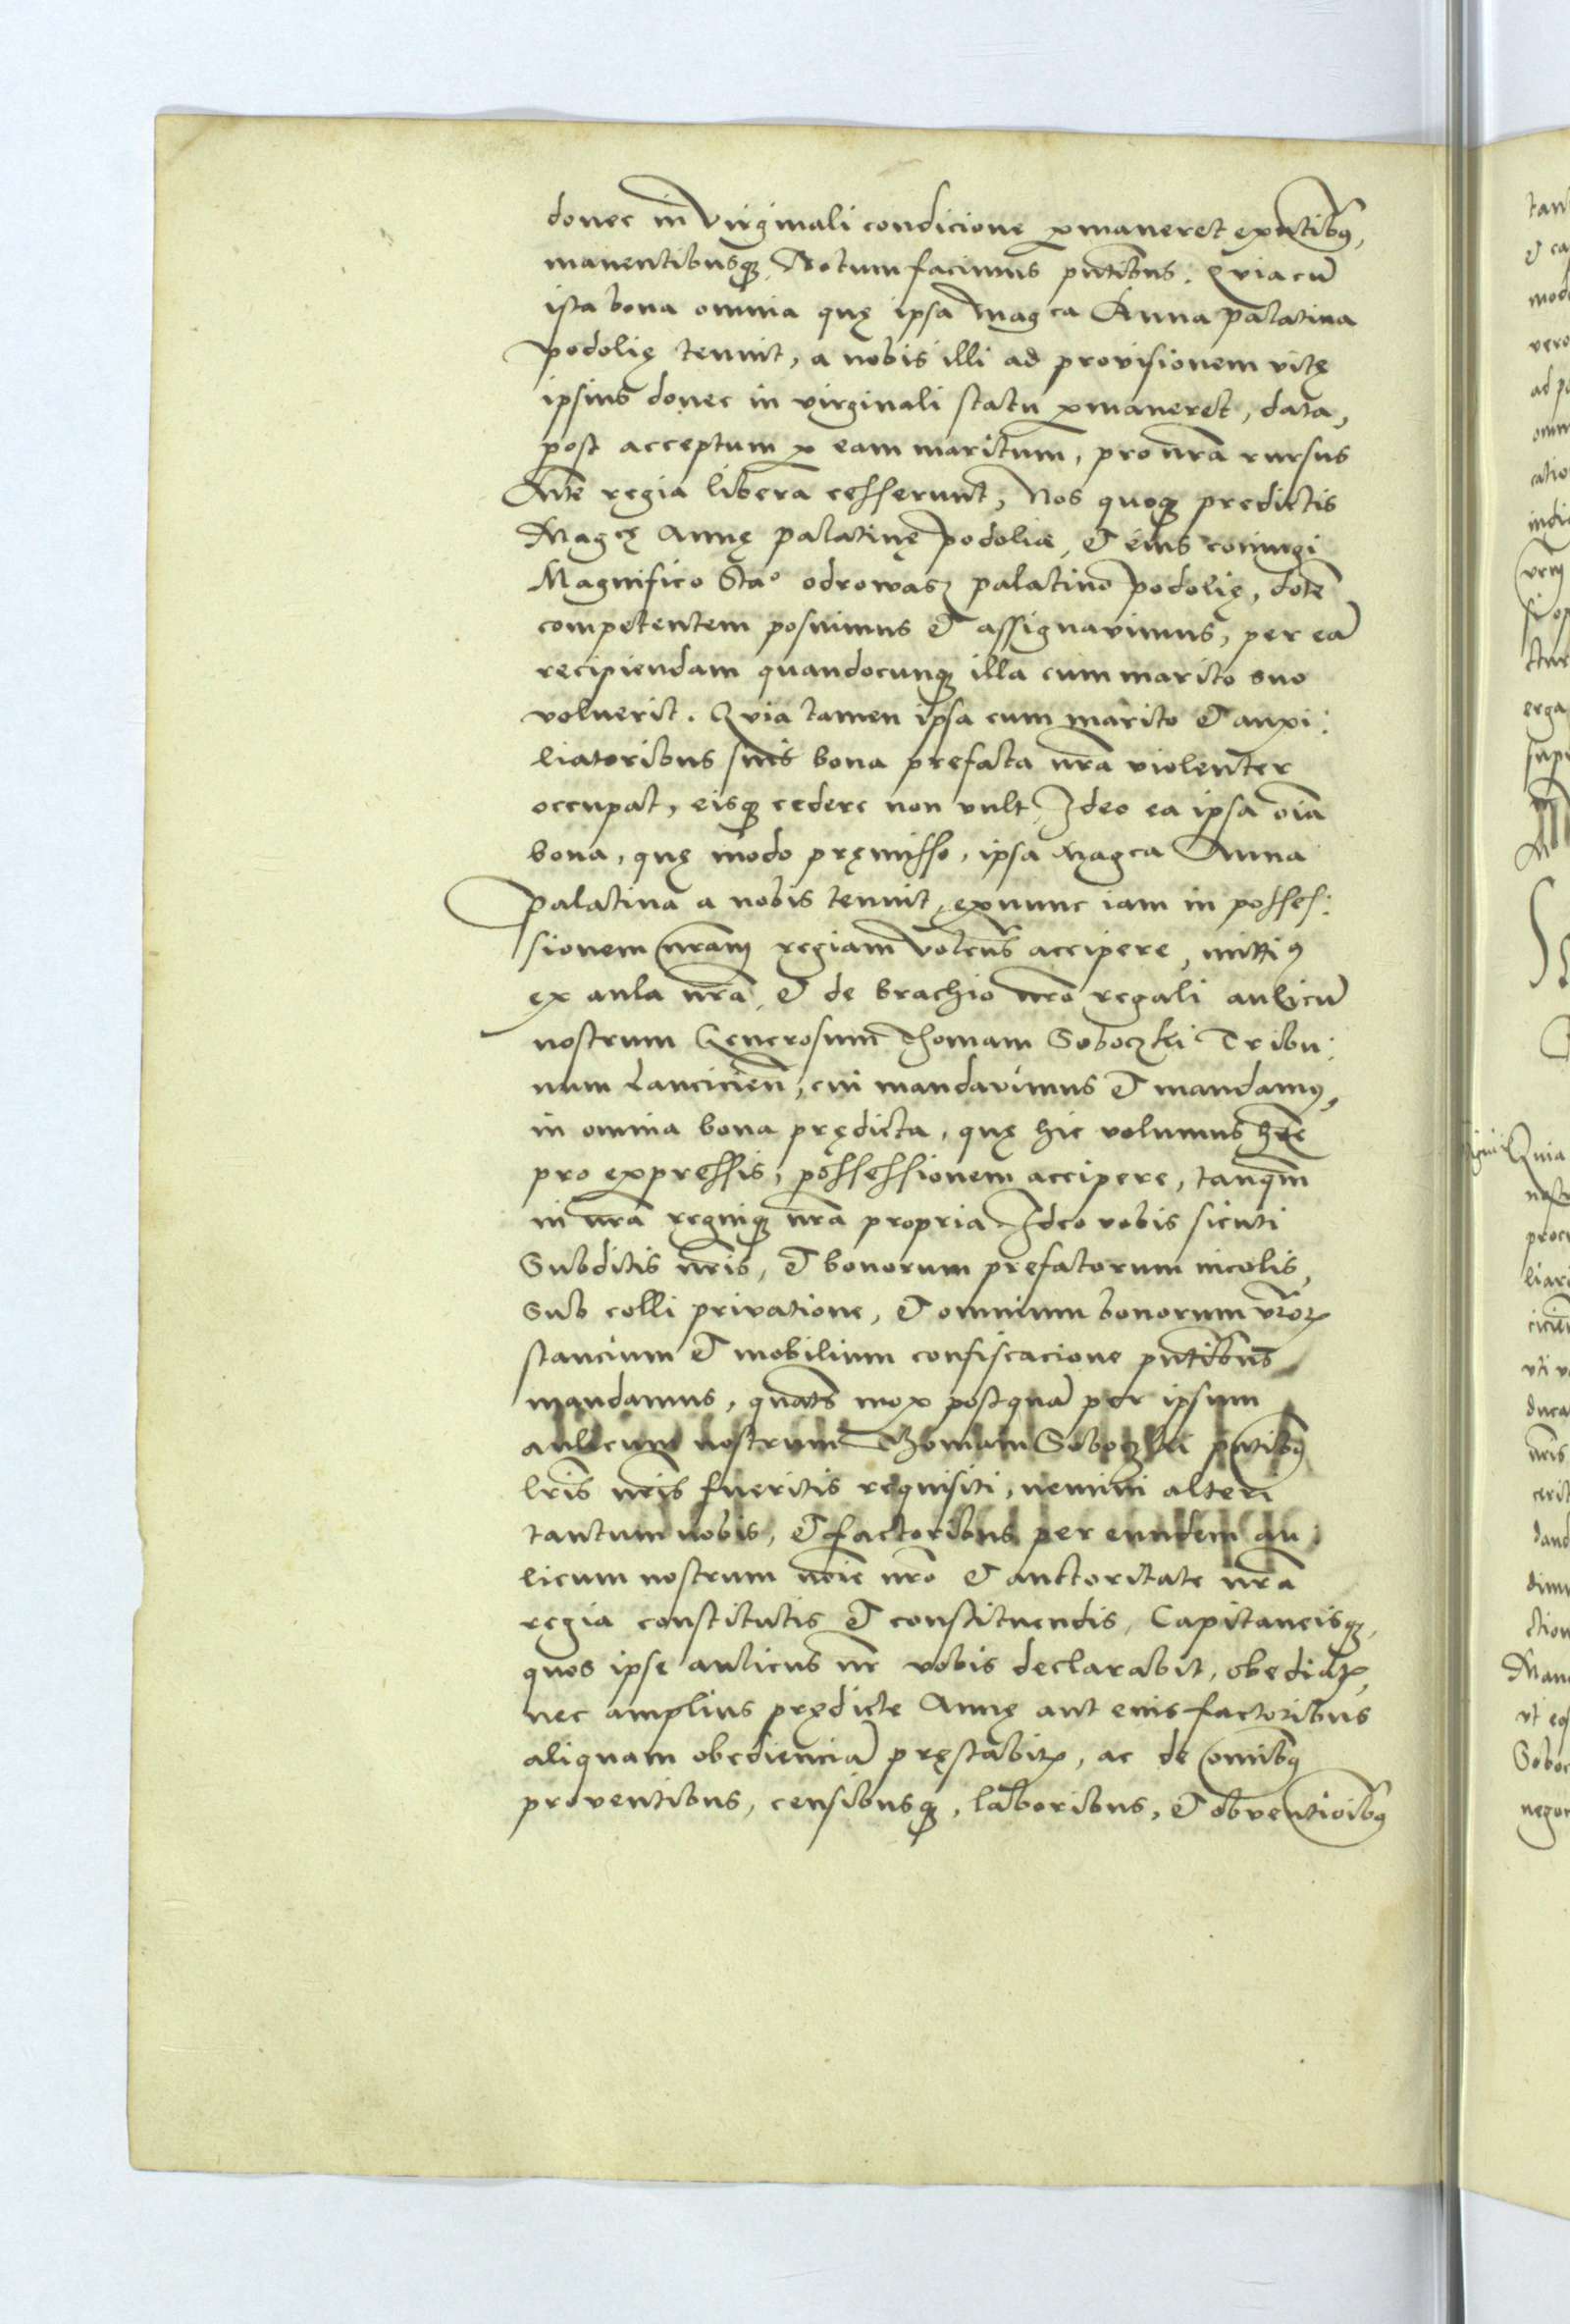 donec in virginali condicione ꝑmaneret exñtibꝰ,
manentibusqꝫ Notum facimus pñtibus. Quia cū
ista bona omnia quę ipsa Magca Anna palatina
podolię tenuit, a nobis illi ad provisionem vitę
ipsius donec in virginali statu ꝑmaneret, data,
post acceptum ꝑ eam maritum, pro nrā rursus
regia libera cesserunt, Nos quoqꝫ predictis
Magcę Annę palatinę podolię, & eius coniugi
Magnifico Stao odrowasz palatino podolię, dotē
competentem posuimus & assignavimus, per eā
recipiendam quandocunqꝫ illa cum marito suo
voluerit. Quia tamen ipsa cum marito & auxi:
liatoribus suis bona prefata nrā violenter
occupat, eisqꝫ cedere non vult Ideo ea ipsa oīa
bona, quę modo pręmisso, ipsa Magca Anna
palatina a nobis tenuit, exnunc iam in posses:
sionem nrām regiam volentes accipere, mittimꝰ
ex aula nrā, & de brachio nrō regali aulicū
nostrum Generosum Thomam Soboczki Tribu:
num Lancicień, cui mandavimus & mandamꝰ,
in omnia bona prędicta, quę hic volumus hrē
pro expressis, possessionem accipere, tanqm̄
in nrā regniqꝫ nrā propria Ideo vobis sicuti
Subditis nrīs, & bonorum prefatorum incolis,
Sub colli privatione, & omnium bonorum vrōꝝ
stancium & mobilium confiscacione pñtibus
mandamus, quats mox postquā per ipsum
aulicum nostrum Thomam Soboczki pñtibꝰ
lrīs nrīs fueritis requisiti, nemini alteri
tantum nobis, & factoribus per eundem au:
licum nostrum noīe nrō & auctoritate nrā
regia constitutis & constituendis, Capitaneisqꝫ,
quos ipse aulicus nr̄ vobis declarabit, obediatꝭ,
nec amplius prędicte Annę aut eius factoribus
aliquam obedienciā pręstabitꝭ, ac de omībꝰ
proventibus, censibusqꝫ, laboribus, & obventioībꝰ